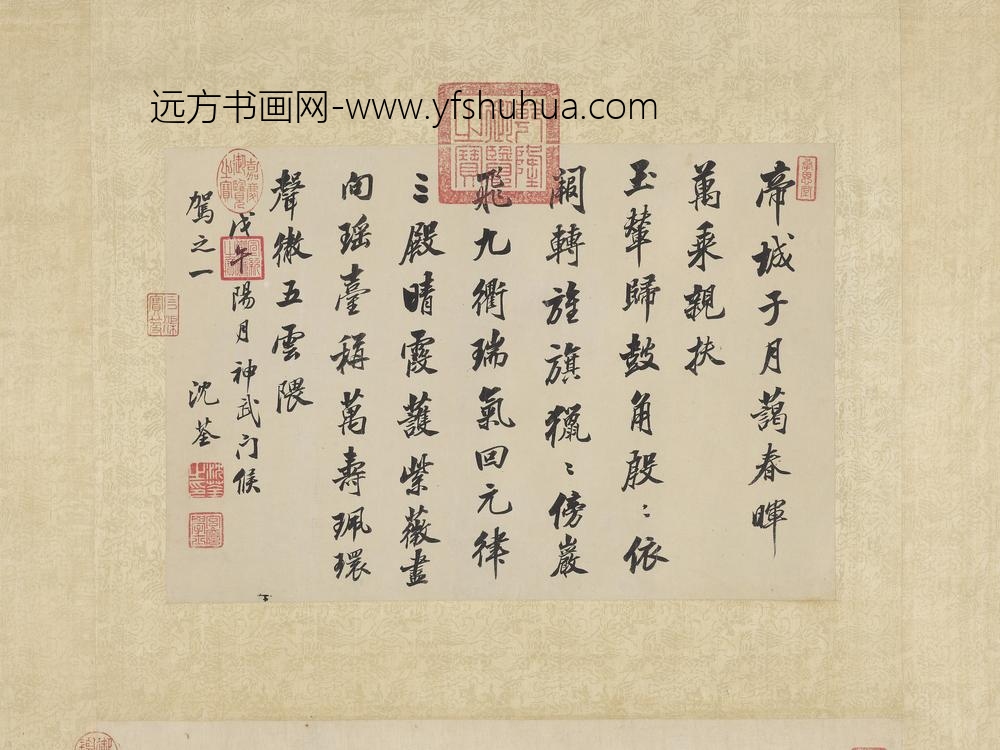 远方书画网-www.yfshuhua.com
帝城子月藹春暉
萬乘親扶
玉輦歸鼓角殷〻依
闕轉旌旗獵〻傍巖
飛九衢瑞氣回元律
三殿晴霞護紫薇盡
向瑶臺稱萬壽珮環
聲徹五雲隈
戊午陽月神武门候
駕之一
沈荃
乾隆御覽之寶
嘉慶御覽之寶
沈荃之印